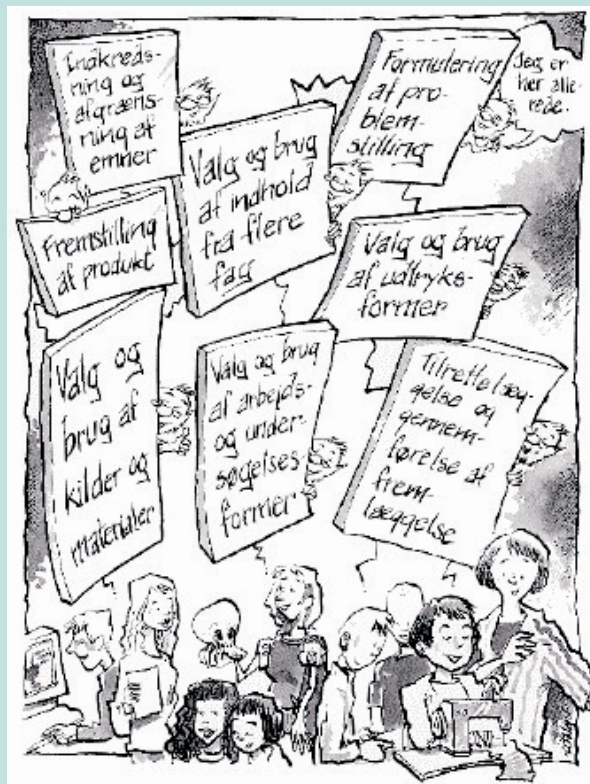 Indkreds-
ning og
afgræns-
ning af
emner
Formulering
af pro-
blem-
stilling
Jeg er
her alle-
rede.
Valg og brug
af indhold
fra flere
fag
Fremstilling
af produkt
Valg og brug
af udtryks-
former
Valg og
brug af
kilder og
materialer
Valg og brug
af arbejds-
og under-
søgelses-
former
Tilrettelæg-
gelse og
gennem-
førelse af
frem-
læggelse